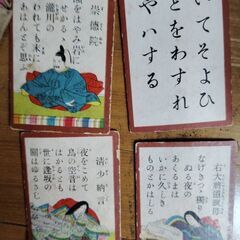 崇徳院
瀬をはやみ岩に
せかるゝ
瀧川の
われても末に
あはんとぞ思ふ
いてそよひ
とをわすれ
やハする
清少納言
夜をこめて
鳥の空音は
はかるとも
世に逢坂の
關はゆるさじ
右大將道綱母
なげきつゝ獨り
ぬる夜の
あくるまは
いかに久しき
ものとかはしる